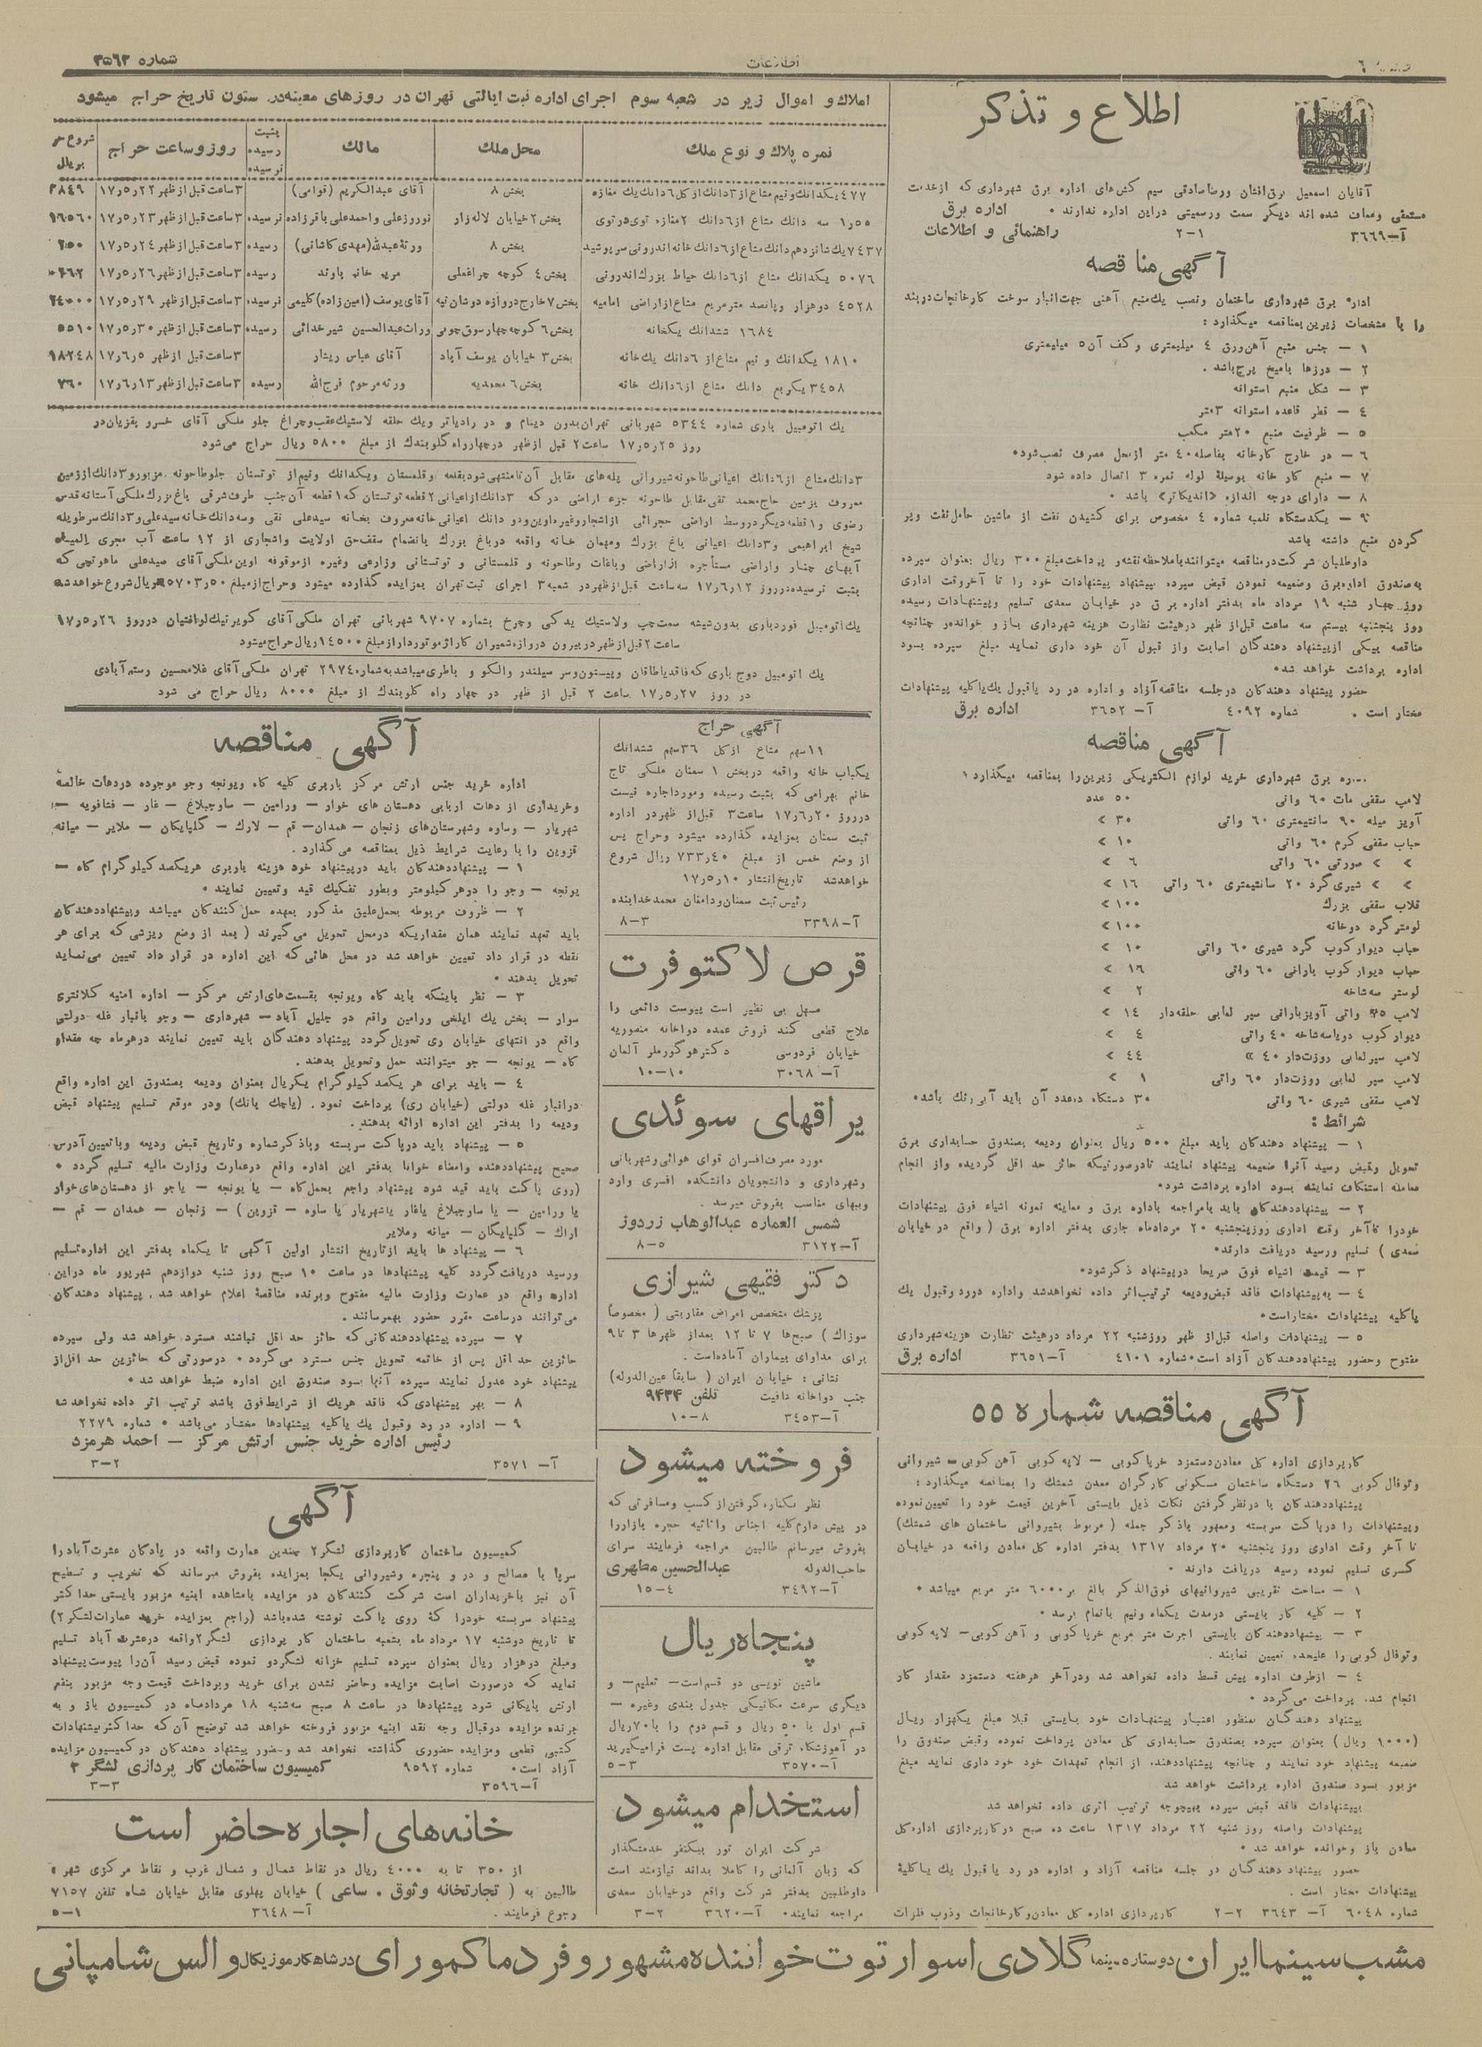 صفحه ٦
اطلاعات
شماره ۳۵٦۲
اطلاع و تذکر
آقایان اسمعیل برق‌افشان و رضا صادقی سیم کش‌های اداره برق شهرداری که از خدمت
مستعفی و معاف شده اند دیگر سمت و رسمیتی در این اداره ندارند . اداره برق
آ-۳٦٦۹ ۱-۲ راهنمائی و اطلاعات
آگهی مناقصه
اداره برق شهرداری ساختمان و نصب یک منبع آهنی جهت انبار سوخت کارخانجات دربند
را با مشخصات زیرین بمناقصه میگذارد :
۱ - جنس منبع آهن ورق ٤ میلیمتری و کف آن ٥ میلیمتری
۲ - درزها با میخ پرچ باشد .
۳ - شکل منبع استوانه
٤ - قطر قاعده استوانه ۳ متر
٥ - ظرفیت منبع ۲۰ متر مکعب
٦ - در خارج کارخانه بفاصله ٤۰ متر از محل مصرف نصب شود .
۷ - منبع کار خانه بوسیلهٔ لوله نمره ۳ اتصال داده شود
۸ - دارای درجه اندازه «اندیکاتر» باشد .
۹ - یکدستگاه تلمبه شماره ٤ مخصوص برای کشیدن نفت از ماشین حامل نفت و پر
کردن منبع داشته باشد
داوطلبان شرکت در مناقصه میتوانند با ملاحظه نقشه و پرداخت مبلغ ۳۰۰ ریال بعنوان سپرده
به صندوق اداره برق و ضمیمه نمودن قبض سپرده پیشنهاد پیشنهادات خود را تا آخر وقت اداری
روز چهار شنبه ۱۹ مرداد ماه بدفتر اداره برق در خیابان سعدی تسلیم و پیشنهادات رسیده
روز پنجشنبه بیستم سه ساعت قبل از ظهر در هیئت نظارت هزینه شهرداری باز و خوانده و چنانچه
مناقصه بیکی از پیشنهاد دهندگان اصابت و از قبول آن خود داری نماید مبلغ سپرده بسود
اداره برداشت خواهد شد .
حضور پیشنهاد دهندگان در جلسه مناقصه آزاد و اداره در رد یا قبول یک یا کلیه پیشنهادات
مختار است . شماره ٤۰۹۲ آ- ۳٦٥۲ اداره برق
آگهی مناقصه
اداره برق شهرداری خرید لوازم الکتریکی زیرین را بمناقصه میگذارد :
لامپ سقفی مات ٦۰ واتی ٥۰ عدد
آویز میله ۹۰ سانتیمتری ٦۰ واتی ۳۰ »
حباب سقفی کرم ٦۰ واتی ۱۰ »
» » صورتی ٦۰ واتی ٦ »
» » شیری گرد ۲۰ سانتیمتری ٦۰ واتی ۱٦ »
قلاب سقفی بزرگ ۱۰۰ »
لومتر گرد دوخانه ۱۰۰ »
حباب دیوار کوب گرد شیری ٦۰ واتی ۱۰ »
حباب دیوار کوب بارانی ٦۰ واتی ۱٦ »
لوستر سه شاخه ۲ »
لامپ ۲٥ واتی آویز بارانی سیر لعابی حلقه‌دار ۱٤ »
دیوار کوب دریا سه شاخه ٤۰ واتی ٤ »
لامپ سیر لعابی روزت‌دار ٤۰ » ٤٤ »
لامپ سیر لعابی روزت‌دار ٦۰ واتی ۱ »
لامپ سقفی شیری ٦۰ واتی ۳۰ دستگاه ده عدد آن باید آبی رنگ باشد .
شرائط :
۱ - پیشنهاد دهندگان باید مبلغ ٥۰۰ ریال بعنوان ودیعه بصندوق حسابداری برق
تحویل و قبض رسید آنرا ضمیمه پیشنهاد نمایند تا در صورتیکه حائز حد اقل گردیده و از انجام
معامله استنکاف نماید بسود اداره برداشت شود .
۲ - پیشنهاد دهندگان باید با مراجعه باداره برق و معاینه نمونه اشیاء فوق پیشنهادات
خود را تا آخر وقت اداری روز پنجشنبه ۲۰ مرداد ماه جاری بدفتر اداره برق ( واقع در خیابان
سعدی ) تسلیم و رسید دریافت دارند .
۳ - قیمت اشیاء فوق صریحا در پیشنهاد ذکر شود .
٤ - به پیشنهادات فاقد قبض ودیعه ترتیب اثر داده نخواهد شد و اداره در رد و قبول یک
یا کلیه پیشنهادات مختار است .
٥ - پیشنهادات واصله قبل از ظهر روز شنبه ۲۲ مرداد در هیئت نظارت هزینه شهرداری
مفتوح و حضور پیشنهاد دهندگان آزاد است . شماره ٤۱۰۱ آ-۳٦٥۱ اداره برق
آگهی مناقصه شماره ٥٥
کارپردازی اداره کل معادن دستمزد خرپا کوبی - لاپه کوبی آهن کوبی - شیروانی
و توفال کوبی ۲٦ دستگاه ساختمان مسکونی کارگران معدن شمشک را بمناقصه میگذارد :
پیشنهاد دهندگان با در نظر گرفتن نکات ذیل بایستی آخرین قیمت خود را تعیین نموده
و پیشنهادات را در پاکت سربسته و ممهور با ذکر جمله ( مربوط بشیروانی ساختمان های شمشک)
تا آخر وقت اداری روز پنجشنبه ۲۰ مرداد ۱۳۱۷ بدفتر اداره کل معادن واقعه در خیابان
کسری تسلیم نموده رسید دریافت دارند .
۱ - مساحت تقریبی شیروانیهای فوق‌الذکر بالغ بر ٦۰۰۰ متر مربع میباشد .
۲ - کلیه کار بایستی در مدت یکماه و نیم باتمام برسد .
۳ - پیشنهاد دهندگان بایستی اجرت متر مربع خرپا کوبی و آهن کوبی - لاپه کوبی
و توفال کوبی را علیحده تعیین نمایند .
٤ - از طرف اداره پیش قسط داده نخواهد شد و در آخر هر هفته دستمزد مقدار کار
انجام شد . پرداخت می گردد .
پیشنهاد دهندگان بمنظور اعتبار پیشنهادات خود بایستی قبلا مبلغ یکهزار ریال
(۱۰۰۰ ریال ) بعنوان سپرده بصندوق حسابداری کل معادن پرداخت نموده و قبض صندوق را
ضمیمه پیشنهاد خود نمایند و چنانچه پیشنهاد دهنده از انجام تعهدات خود خود داری نماید مبلغ
مزبور بسود صندوق اداره برداشت خواهد شد
به پیشنهادات فاقد قبض سپرده بهیچوجه ترتیب اثری داده نخواهد شد
پیشنهادات واصله روز شنبه ۲۲ مرداد ۱۳۱۷ ساعت ده صبح در کارپردازی اداره کل
معادن باز و خوانده خواهد شد .
حضور پیشنهاد دهندگان در جلسه مناقصه آزاد و اداره در رد یا قبول یک یا کلیهٔ
پیشنهادات مختار است .
شماره ٦۰٤۸ آ- ۳٦٤۳ ۲-۲ کارپردازی اداره کل معادن و کارخانجات و ذوب فلزات
املاک و اموال زیر در شعبه سوم اجرای اداره ثبت ایالتی تهران در روزهای معینه در ستون تاریخ حراج میشود
نمره پلاک و نوع ملک | محل ملک | مالک | بثبت رسیده نرسیده | روز و ساعت حراج | شروع حر بریال
٤۷۷ یکدانک و نیم متاع از ۳ دانک از کل ٦ دانک یک مغازه | بخش ۸ | آقای عبدالکریم (قوامی) | ۳ ساعت قبل از ظهر ۲۲ر٥ر۱۷ | ۲۸٤۹
۱ر٥٥ سه دانک متاع از ٦ دانک ۲ مغازه توی در توی | بخش ۲ خیابان لاله زار | نوروز علی و احمد علی باقرزاده | نرسیده | ۳ ساعت قبل از ظهر ۲۳ر٥ر۱۷ | ۹٦٥٦۰
۷٤۳۷ یک شانزدهم دانک متاع از ٦ دانک خانه اندرونی سرپوشید | بخش ۸ | ورثهٔ عبدالله (مهدی کاشانی) | رسیده | ۳ ساعت قبل از ظهر ۲٤ر٥ر۱۷
٥۰۷٦ یکدانک متاع از ٦ دانک حیاط بزرگ اندرونی | بخش ٤ کوچه چراغعلی | مریم خانم باوند | رسیده | ۳ ساعت قبل از ظهر ۲٦ر٥ر۱۷
٤٥۲۸ دو هزار و پانصد متر مربع متاع از اراضی امامیه | بخش ۷ خارج دروازه دوشان تپه | آقای یوسف (امین زاده) کلیمی | نرسیده | ۳ ساعت قبل از ظهر ۲۹ر٥ر۱۷ | ۲٤٥۰۰
۱٦۸٤ ششدانک یکخانه | بخش ٦ کوچه چهار سوق چوبی | وراث عبدالحسین شیر خدائی | رسیده | ۳ ساعت قبل از ظهر ۳۰ر٥ر۱۷ | ٥٥۱۰
۱۸۱۰ یکدانک و نیم متاع از ٦ دانک یک خانه | بخش ۳ خیابان یوسف آباد | آقای عباس ریشار | ۳ ساعت قبل از ظهر ٥ر٦ر۱۷ | ۹۸۲٤۸
۳٤٥۸ یکربع دانک متاع از ٦ دانک خانه | بخش ٦ محمدیه | ورثه مرحوم فرج الله | رسیده | ۳ ساعت قبل از ظهر ۱۳ر٦ر۱۷ | ۷٦۰
یک اتومبیل باری شماره ٥۳٤٤ شهربانی تهران بدون دینام و در رادیاتر و یک حلقه لاستیک عقب و چراغ جلو ملکی آقای خسرو بقزیان در
روز ۲٥ر٥ر۱۷ ساعت ۲ قبل از ظهر در چهار راه گلوبندک از مبلغ ٥۸۰۰ ریال حراج می‌شود
۳ دانک متاع از ٦ دانک اعیانی طاحونه شیروانی پله‌های مقابل آن تا منتهی شود بقلعه و قلمستان و یکدانک و نیم از توتستان جلو طاحونه مزبور و ۳ دانک از زمین
معروف بزمین حاج محمد تقی مقابل طاحونه جزء اراضی در که ۳ دانک از اعیانی ۲ قطعه توتستان که ۱ قطعه آن جنب طرف شرقی باغ بزرگ ملکی آستانه قدس
رضوی و ۱ قطعه دیگر در وسط اراضی حجرائی از اشجار و غیره اوین و دو دانک اعیانی خانه معروف بخانه سید علی نقی و سه دانک خانه سید علی و ۳ دانک سر طویله
شیخ ابراهیمی و ۳ دانک اعیانی باغ بزرگ و مهمان خانه واقعه در باغ بزرگ بانضمام سقف حق اولایت و اشجاری از ۱۲ ساعت آب مجری المیاه
آبهای چنار و اراضی مستأجره از اراضی و باغات و طاحونه و قلمستانی و توتستانی و زارعی و غیره از موقوفه اوین ملکی آقای سید علی ماهوتچی که
بثبت نرسیده در روز ۱۲ر٦ر۱۷ سه ساعت قبل از ظهر در شعبه ۳ اجرای ثبت تهران بمزایده گذارده میشود و حراج از مبلغ ریال شروع خواهد شد
یک اتومبیل فورد باری بدون شیشه سمت چپ و لاستیک یدکی و چرخ بشماره ۹۷۰۷ شهربانی تهران ملکی آقای کوبر تیک لو اقتیان در روز ۲٦ر٥ر۱۷
ساعت ۲ قبل از ظهر در بیرون دروازه شمیران کاراژ موتور دار از مبلغ ۱٤٥۰۰ ریال حراج میشود
یک اتومبیل دوج باری که فاقد یاطاقان و پیستون و سر سیلندر و الکو و باطری میباشد به شماره ۲۹۷٤ تهران ملکی آقای غلامحسین رستم آبادی
در روز ۲۷ر٥ر۱۷ ساعت ۲ قبل از ظهر در چهار راه گلوبندک از مبلغ ۸۰۰۰ ریال حراج می شود
آگهی حراج
۱۱ سهم متاع از کل ۳٦ سهم ششدانک
یکباب خانه واقعه در بخش ۱ سمنان ملکی تاج
خانم بهرامی که بثبت رسیده و مورد اجاره نیست
در روز ۲۰ر٦ر۱۷ ساعت ۳ قبل از ظهر در اداره
ثبت سمنان بمزایده گذارده میشود و حراج پس
از وضع خمس از مبلغ ٤۰ر۷۳۳ ریال شروع
خواهد شد تاریخ انتشار ۱۰ر٥ر۱۷
رئیس ثبت سمنان و دامغان محمد خداینده
آ-۳۳۹۸ ۳-۸
قرص لاکتوفرت
مسهل بی نظیر است یبوست دائمی را
علاج قطعی کند فروش عمده دواخانه منصوریه
خیابان فردوسی دکتر هوگو رملر آلمان
آ- ۳۰٦۸ ۱۰-۱۰
یراقهای سوئدی
مورد مصرف افسران قوای هوائی و شهربانی
و شهرداری و دانشجویان دانشکده افسری وارد
و ببهای مناسب بفروش میرسد .
شمس العماره عبدالوهاب زردوز
آ-۳۱۲۲ ٥-۸
دکتر فقیهی شیرازی
پزشک متخصص امراض مقاربتی ( مخصوصاً
سوزاک ) صبح‌ها ۷ تا ۱۲ بعد از ظهرها ۳ تا ۹
برای مداوای بیماران آماده است .
نشانی : خیابان ایران ( سابقا عین الدوله)
جنب دواخانه عافیت تلفن ۹۴۳۴
آ-۳٤٥۳ ۸-۱۰
فروخته میشود
نظر بکناره گرفتن از کسب و مسافرتی که
در پیش دارم کلیه اجناس و اثاثیه حجره بازار را
بفروش میرسانم طالبین مراجعه فرمایند سرای
حاجب الدوله عبدالحسین مطهری
آ-۳٤۹۲ ٤-۱٥
پنجاه ریال
ماشین نویسی دو قسم است - تعلیم - و
دیگری سرعت مکانیکی جدول بندی و غیره -
قسم اول با ٥۰ ریال و قسم دوم را با ۷۰ ریال
در آموزشگاه ترقی مقابل اداره پست فرا میگیرید
آ-۳٥۷۰ ۳-٥
استخدام میشود
شرکت ایران تور بیکنفر خدمتگذار
که زبان آلمانی را کاملا بداند نیازمند است
داوطلبین بدفتر شرکت واقع در خیابان سعدی
مراجعه نمایند . آ-۳٦۲۰ ۲-۳
آگهی مناقصه
اداره خرید جنس ارتش مرکز باربری کلیه کاه و یونجه و جو موجوده در دهات خالصه
و خریداری از دهات اربابی دهستان های خوار - ورامین - ساوجبلاغ - غار - فشافویه -
شهریار - و ساوه و شهرستان‌های زنجان - همدان - قم - لارک - گلپایگان - ملایر - میانه
قزوین را با رعایت شرایط ذیل بمناقصه می گذارد .
۱ - پیشنهاد دهندگان باید در پیشنهاد خود هزینه باربری هر یکصد کیلوگرام کاه -
یونجه - و جو را در هر کیلومتر و بطور تفکیک قید و تعیین نمایند .
۲ - ظروف مربوطه بحمل علیق مذکور بعهده حمل کنندگان میباشد و پیشنهاد دهندگان
باید تعهد نمایند همان مقداریکه در محل تحویل می‌گیرند ( بعد از وضع ریزشی که برای هر
نقطه در قرار داد تعیین خواهد شد در محل هائی که این اداره در قرار داد تعیین می‌نماید
تحویل بدهند .
۳ - نظر باینکه باید کاه و یونجه بقسمت‌های ارتش مرکز - اداره امنیه کلانتری
سوار - بخش یک ایلخی ورامین واقع در جلیل آباد - شهرداری - و جو بانبار غله دولتی
واقع در انتهای خیابان ری تحویل گردد پیشنهاد دهندگان باید تعیین نمایند در هر ماه چه مقدار
کاه - یونجه - جو میتوانند حمل و تحویل بدهند .
٤ - باید برای هر یکصد کیلوگرام یکریال بعنوان ودیعه بصندوق این اداره واقع
در انبار غله دولتی (خیابان ری) پرداخت نمود . (یا چک بانک) و در موقع تسلیم پیشنهاد قبض
ودیعه را بدفتر این اداره ارائه بدهند .
٥ - پیشنهاد باید در پاکت سربسته و با ذکر شماره و تاریخ قبض ودیعه و با تعیین آدرس
صحیح پیشنهاد دهنده و امضاء خوانا بدفتر این اداره واقع در عمارت وزارت مالیه تسلیم گردد .
(روی پاکت باید قید شود پیشنهاد راجع بحمل کاه - یا یونجه - یا جو از دهستان‌های خوار
یا ورامین - یا ساوجبلاغ یا غار یا شهریار یا ساوه - قزوین ) - زنجان - همدان - قم -
اراک - گلپایگان - میانه و ملایر
٦ - پیشنهاد ها باید از تاریخ انتشار اولین آگهی تا یکماه بدفتر این اداره تسلیم
و رسید دریافت گردد کلیه پیشنهادها در ساعت ۱۰ صبح روز شنبه دوازدهم شهریور ماه در این
اداره واقع در عمارت وزارت مالیه مفتوح و برنده مناقصهٔ اعلام خواهد شد . پیشنهاد دهندگان
می‌توانند در ساعت مقرر حضور بهمرسانند .
۷ - سپرده پیشنهاد دهندگانی که حائز حد اقل نباشند مسترد خواهد شد ولی سپرده
حائزین حد اقل پس از خاتمه تحویل جنس مسترد می‌گردد . در صورتی که حائزین حد اقل از
پیشنهاد خود عدول نمایند سپرده آنها بسود صندوق این اداره ضبط خواهد شد .
۸ - بهر پیشنهادی که فاقد هریک از شرایط فوق باشد ترتیب اثر داده نخواهد شد
۹ - اداره در رد و قبول یک یا کلیه پیشنهادها مختار می‌باشد . شماره ۲۲۷۹
رئیس اداره خرید جنس ارتش مرکز - احمد هرمزد
آ- ۳٥۷۱ ۲-۳
آگهی
کمیسیون ساختمان کارپردازی لشگر ۲ چندین عمارت واقعه در پادگان عشرت آباد را
سرپا با مصالح و در و پنجره و شیروانی یکجا بمزایده بفروش میرساند که تخریب و تسطیح
آن نیز با خریداران است شرکت کنندگان در مزایده با مشاهده ابنیه مزبور بایستی حد اکثر
پیشنهاد سربسته خود را که روی پاکت نوشته شده باشد (راجع بمزایده خرید عمارات لشگر ۲)
تا تاریخ دوشنبه ۱۷ مرداد ماه بشعبه ساختمان کار پردازی لشگر ۲ واقعه در عشرت آباد تسلیم
و مبلغ ده هزار ریال بعنوان سپرده تسلیم خزانه لشگر دو نموده قبض رسید آن را پیوست پیشنهاد
نماید که در صورت اصابت مزایده و حاضر نشدن برای خرید و پرداخت قیمت وجه مزبور بنفع
ارتش بایگانی شود پیشنهادها در ساعت ۸ صبح سه شنبه ۱۸ مرداد ماه در کمیسیون باز و به
برنده مزایده در قبال وجه نقد ابنیه مزبور فروخته خواهد شد توضیح آن که حد اکثر پیشنهادات
کتبی قطعی و مزایده حضوری گذاشته نخواهد شد و حضور پیشنهاد دهندگان در کمیسیون مزایده
آزاد است . شماره ۹٥۹۲ کمیسیون ساختمان کار پردازی لشگر ۲
آ-۳٥۹٦ ۳-۳
خانه‌های اجاره حاضر است
از ۳٥۰ تا به ٤۰۰۰ ریال در نقاط شمال و شمال غرب و نقاط مرکزی شهر .
طالبین به ( تجارتخانه وثوق . ساعی ) خیابان پهلوی مقابل خیابان شاه تلفن ۷۱٥۷
رجوع فرمایند . آ-۳٦٤۸ ۱-٥
مشب سینما ایران دو ستاره سینما گلادی اسوارتوت خواننده مشهور و فرد ماکمورای در شاهکار موزیکال والس شامپانی